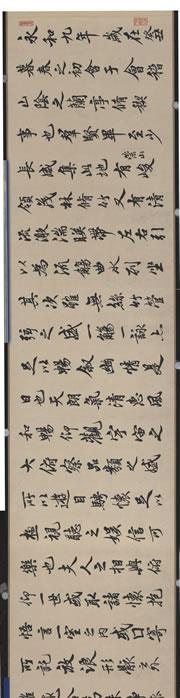 永和九年歲在癸丑
暮春之初會于會稽
山陰之蘭亭脩稧
事也羣賢畢至少
長咸集此地有崇山峻
領茂林脩竹又有清
流激湍暎帶左右引
以為流觴曲水列坐
其次雖無絲竹管
弦之盛一觴一詠亦
足以暢敘幽情是
日也天朗氣清惠風
和暢仰觀宇宙之
大俯察品類之盛
所以遊目騁懷足以
極視聽之娛信可
樂也夫人之相與俯
仰一世或取諸懷抱
悟言一室之內或因寄
所託放浪形骸之外